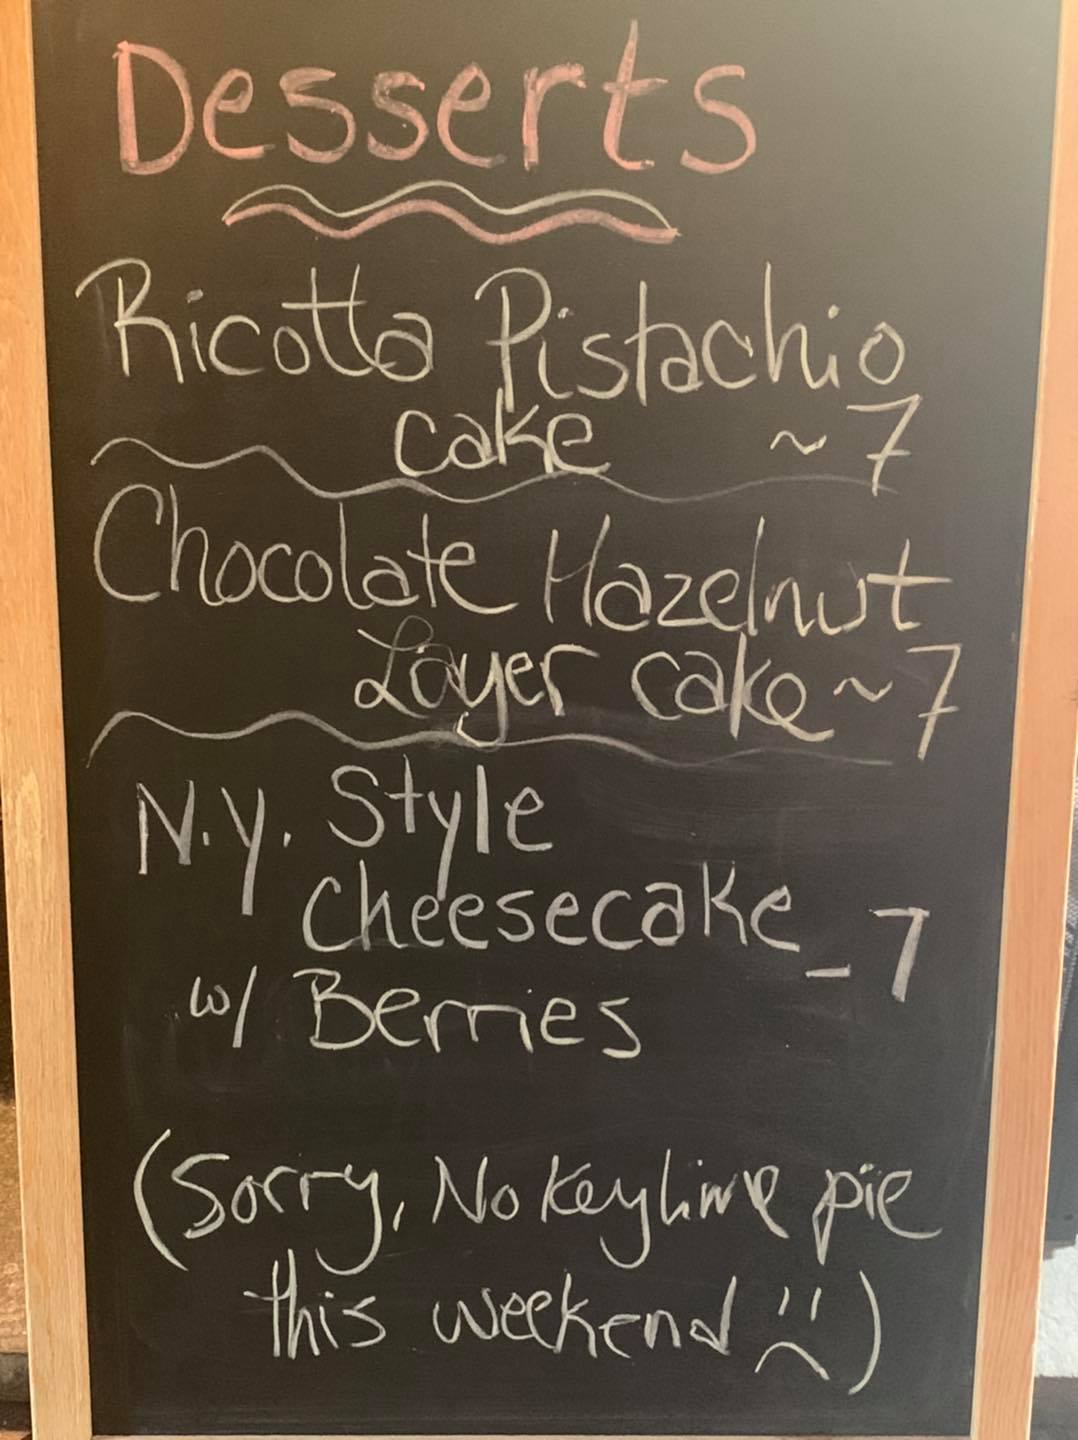 Desserts
Ricotta Pistachio
cake ~ 7
Chocolate Hazelnut
Layer cake ~ 7
N.Y. Style
Cheesecake - 7
w/ Berries
(Sorry, No Keylime pie
this weekend :( )